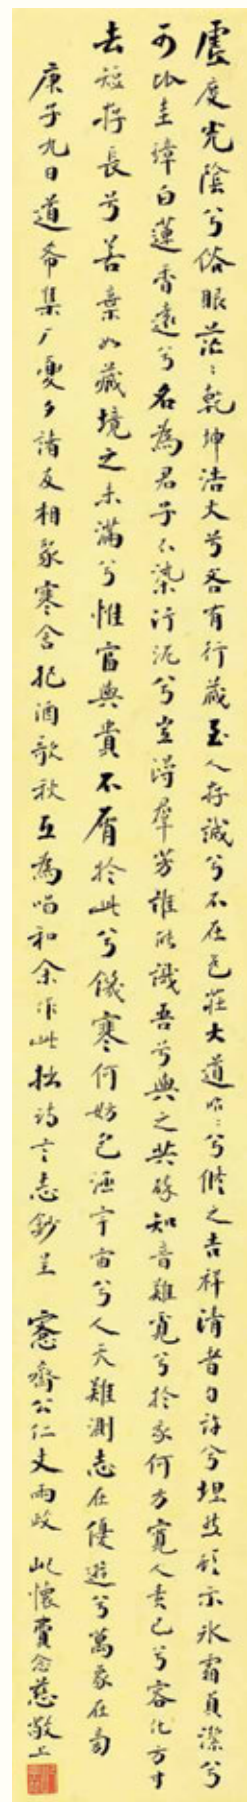 虛度光陰兮俗眼茫々乾坤浩大兮吾有行藏至人存誠兮不在色莊大道昭々兮修之吉祥清者自許兮坦然形示冰霜貞潔兮
可比圭璋白蓮香遠兮名為君子不染污泥兮豈得羣芳誰能識吾兮與之共酬知音難覓兮於我何方寬人責己兮容化方寸
去短存長兮善棄如藏境之未滿兮惟富與貴不屑於此兮饑寒何妨包涵宇宙兮人天難測志在優遊兮萬象在旁
庚子九日道希集廣雯多諸友相聚寒舍把酒歌秋互為唱和余作此拙詩言志錄呈 窓齋公仁丈兩政 屺懷費念慈敬上